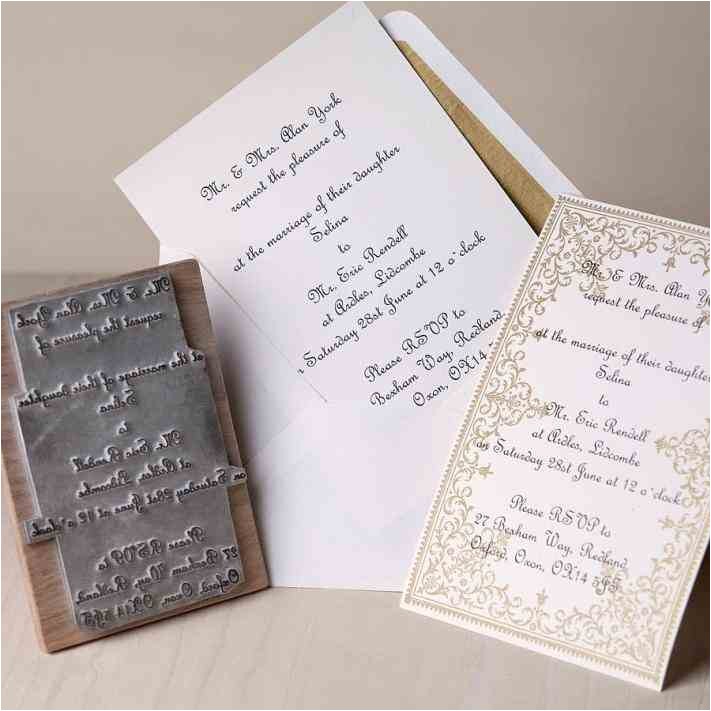 Mr. & Mrs. Alan York
request the pleasure of
at the marriage of their daughter
Selina
to
Mr. Eric Rendell
at Aidles, Lidcombe
Saturday 28st June at 12 o'clock
Please RSVP to
Bexham Way, Redland
Oxon, OX14
Mr. & Mrs. Alan Yo
request the pleasure of
at the marriage of their daughter
Selina
to
Mr. Eric Rendell
at Aidles, Lidcombe
on Saturday 28st June at 12 o'clock
Please RSVP to
27 Bexham Way, Redland,
Oxford, Oxon, OX14 5JS
Mr. & Mrs. Alan York
request the pleasure of
at the marriage of their daughter
Selina
to
Mr. Eric Rendell
at Aidles, Lidcombe
on Saturday 28st June at 12 o'clock
Please RSVP to
27 Bexham Way, Redland,
Oxford, Oxon, OX14 5JS